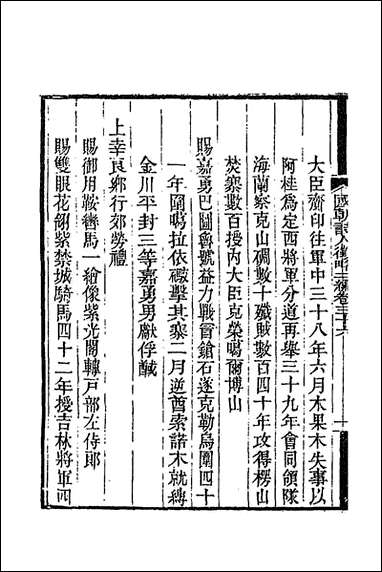 國朝詩人徵略二編卷三十六
大臣齋印往軍中三十八年六月木果木失事以
阿桂為定西將軍分道再舉三十九年會同領隊
海蘭察克山碉數十殲賊數百四十年攻得楞山
焚寨數百授內大臣克榮噶爾博山
賜嘉勇巴圖魯號益力戰冒鎗石遂克勒烏圍四十
一年圍噶拉依礮擊其寨二月逆酋索諾木就縛
金川平封三等嘉勇男獻俘馘
上幸良鄉行郊勞禮
賜御用鞍轡馬一繪像紫光閣轉戶部左侍郎
賜雙眼花翎紫禁城騎馬四十二年授吉林將軍四